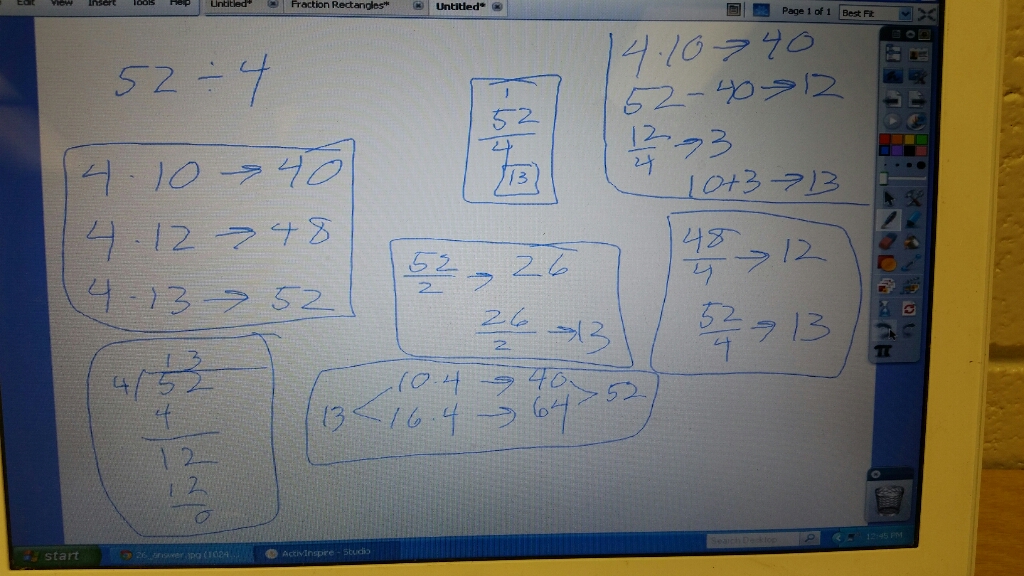 Edit View Insert Tools Help
Untitled* Fraction Rectangles* Untitled*
Page 1 of 1 Best Fit
52 ÷ 4
4 · 10 → 40
4 · 12 → 48
4 · 13 → 52
1
52
4
13
4 · 10 → 40
52 - 40 → 12
12/4 → 3
10+3 → 13
52/2 → 26
26/2 → 13
48/4 → 12
52/4 → 13
13
4 52
4
12
12
0
10 · 4 → 40
13 < > 52
16 · 4 → 64
start 26_answer.jpg (1024... ActivInspire - Studio Search Desktop 12:45 PM